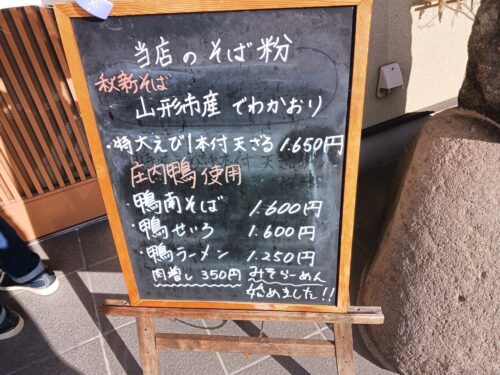 当店のそば粉
秋新そば
山形市産 でわかおり
・特大えび1本付 天ざる 1.650円
庄内鴨使用
・鴨南そば 1.600円
・鴨せいろ 1.600円
・鴨ラーメン 1.250円
肉増し 350円 みそらーめん
始めました!!